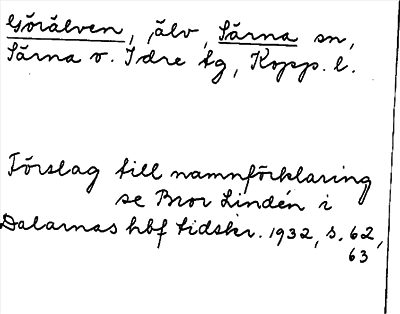 Görälven, älv, Särna sn,
Särna o. Idre tg, Kopp. l.
Förslag till namnförklaring
se Bror Lindén i
Dalarnas hbf tidskr. 1932, s. 62,
63